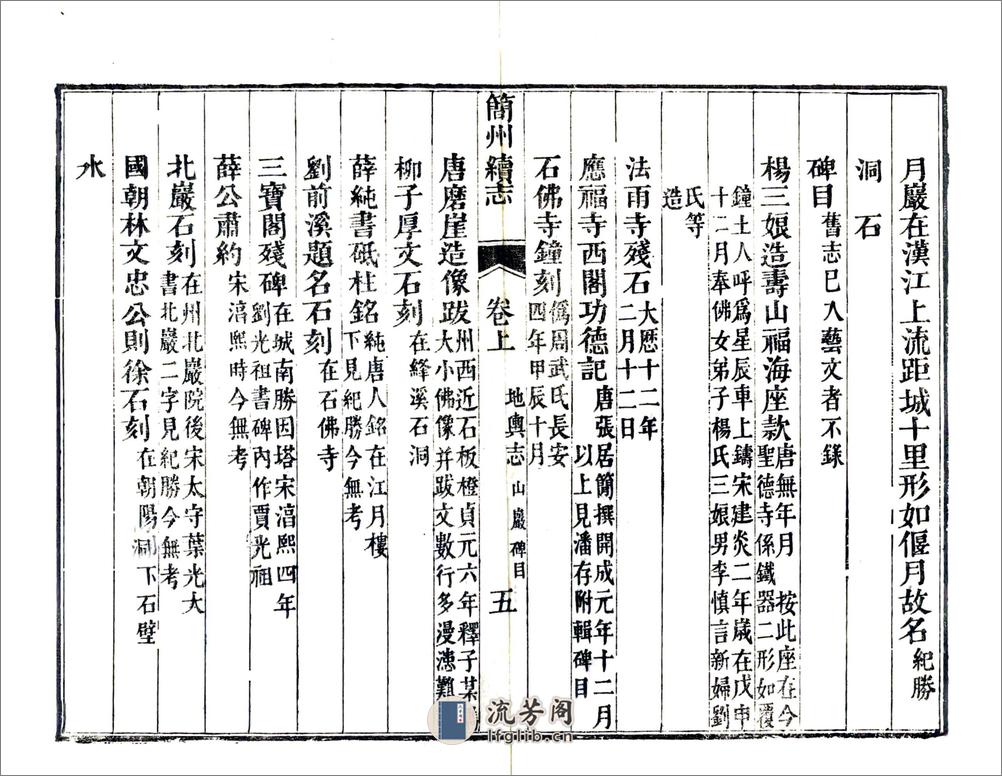 月巖在漢江上流距城十里形如偃月故名紀勝
洞石
碑目舊志已入藝文者不錄
楊三娘造壽山福海座款唐無年月 按此座在今
聖德寺係鐵器二形如覆
鐘土人呼爲星辰車上鑄宋建炎二年歲在戊申
十二月奉佛女弟子楊氏三娘男李慎言新婦劉
氏等
造
法雨寺殘石大歷十二年
二月十二日
應福寺西閣功德記唐張居簡撰開成元年十二月
以上見潘存附輯碑目
石佛寺鐘刻僞周武氏長安
四年甲辰十月
簡州續志 卷上 地輿志 山巖碑目 五
唐磨崖造像跋州西近石板橙貞元六年釋子某
大小佛像并跋文數行多漫漶難
柳子厚文石刻在絳溪石洞
薛純書砥柱銘純唐人銘在江月樓
下見紀勝今無考
劉前溪題名石刻在石佛寺
三寶閣殘碑在城南勝因塔宋淳熙四年
劉光祖書碑內作賈光祖
薛公肅約宋淳熙時今無考
北巖石刻在州北巖院後宋太守葉光大
書北巖二字見紀勝今無考
國朝林文忠公則徐石刻在朝陽洞下石壁
水
流芳阁
lfglib.cn